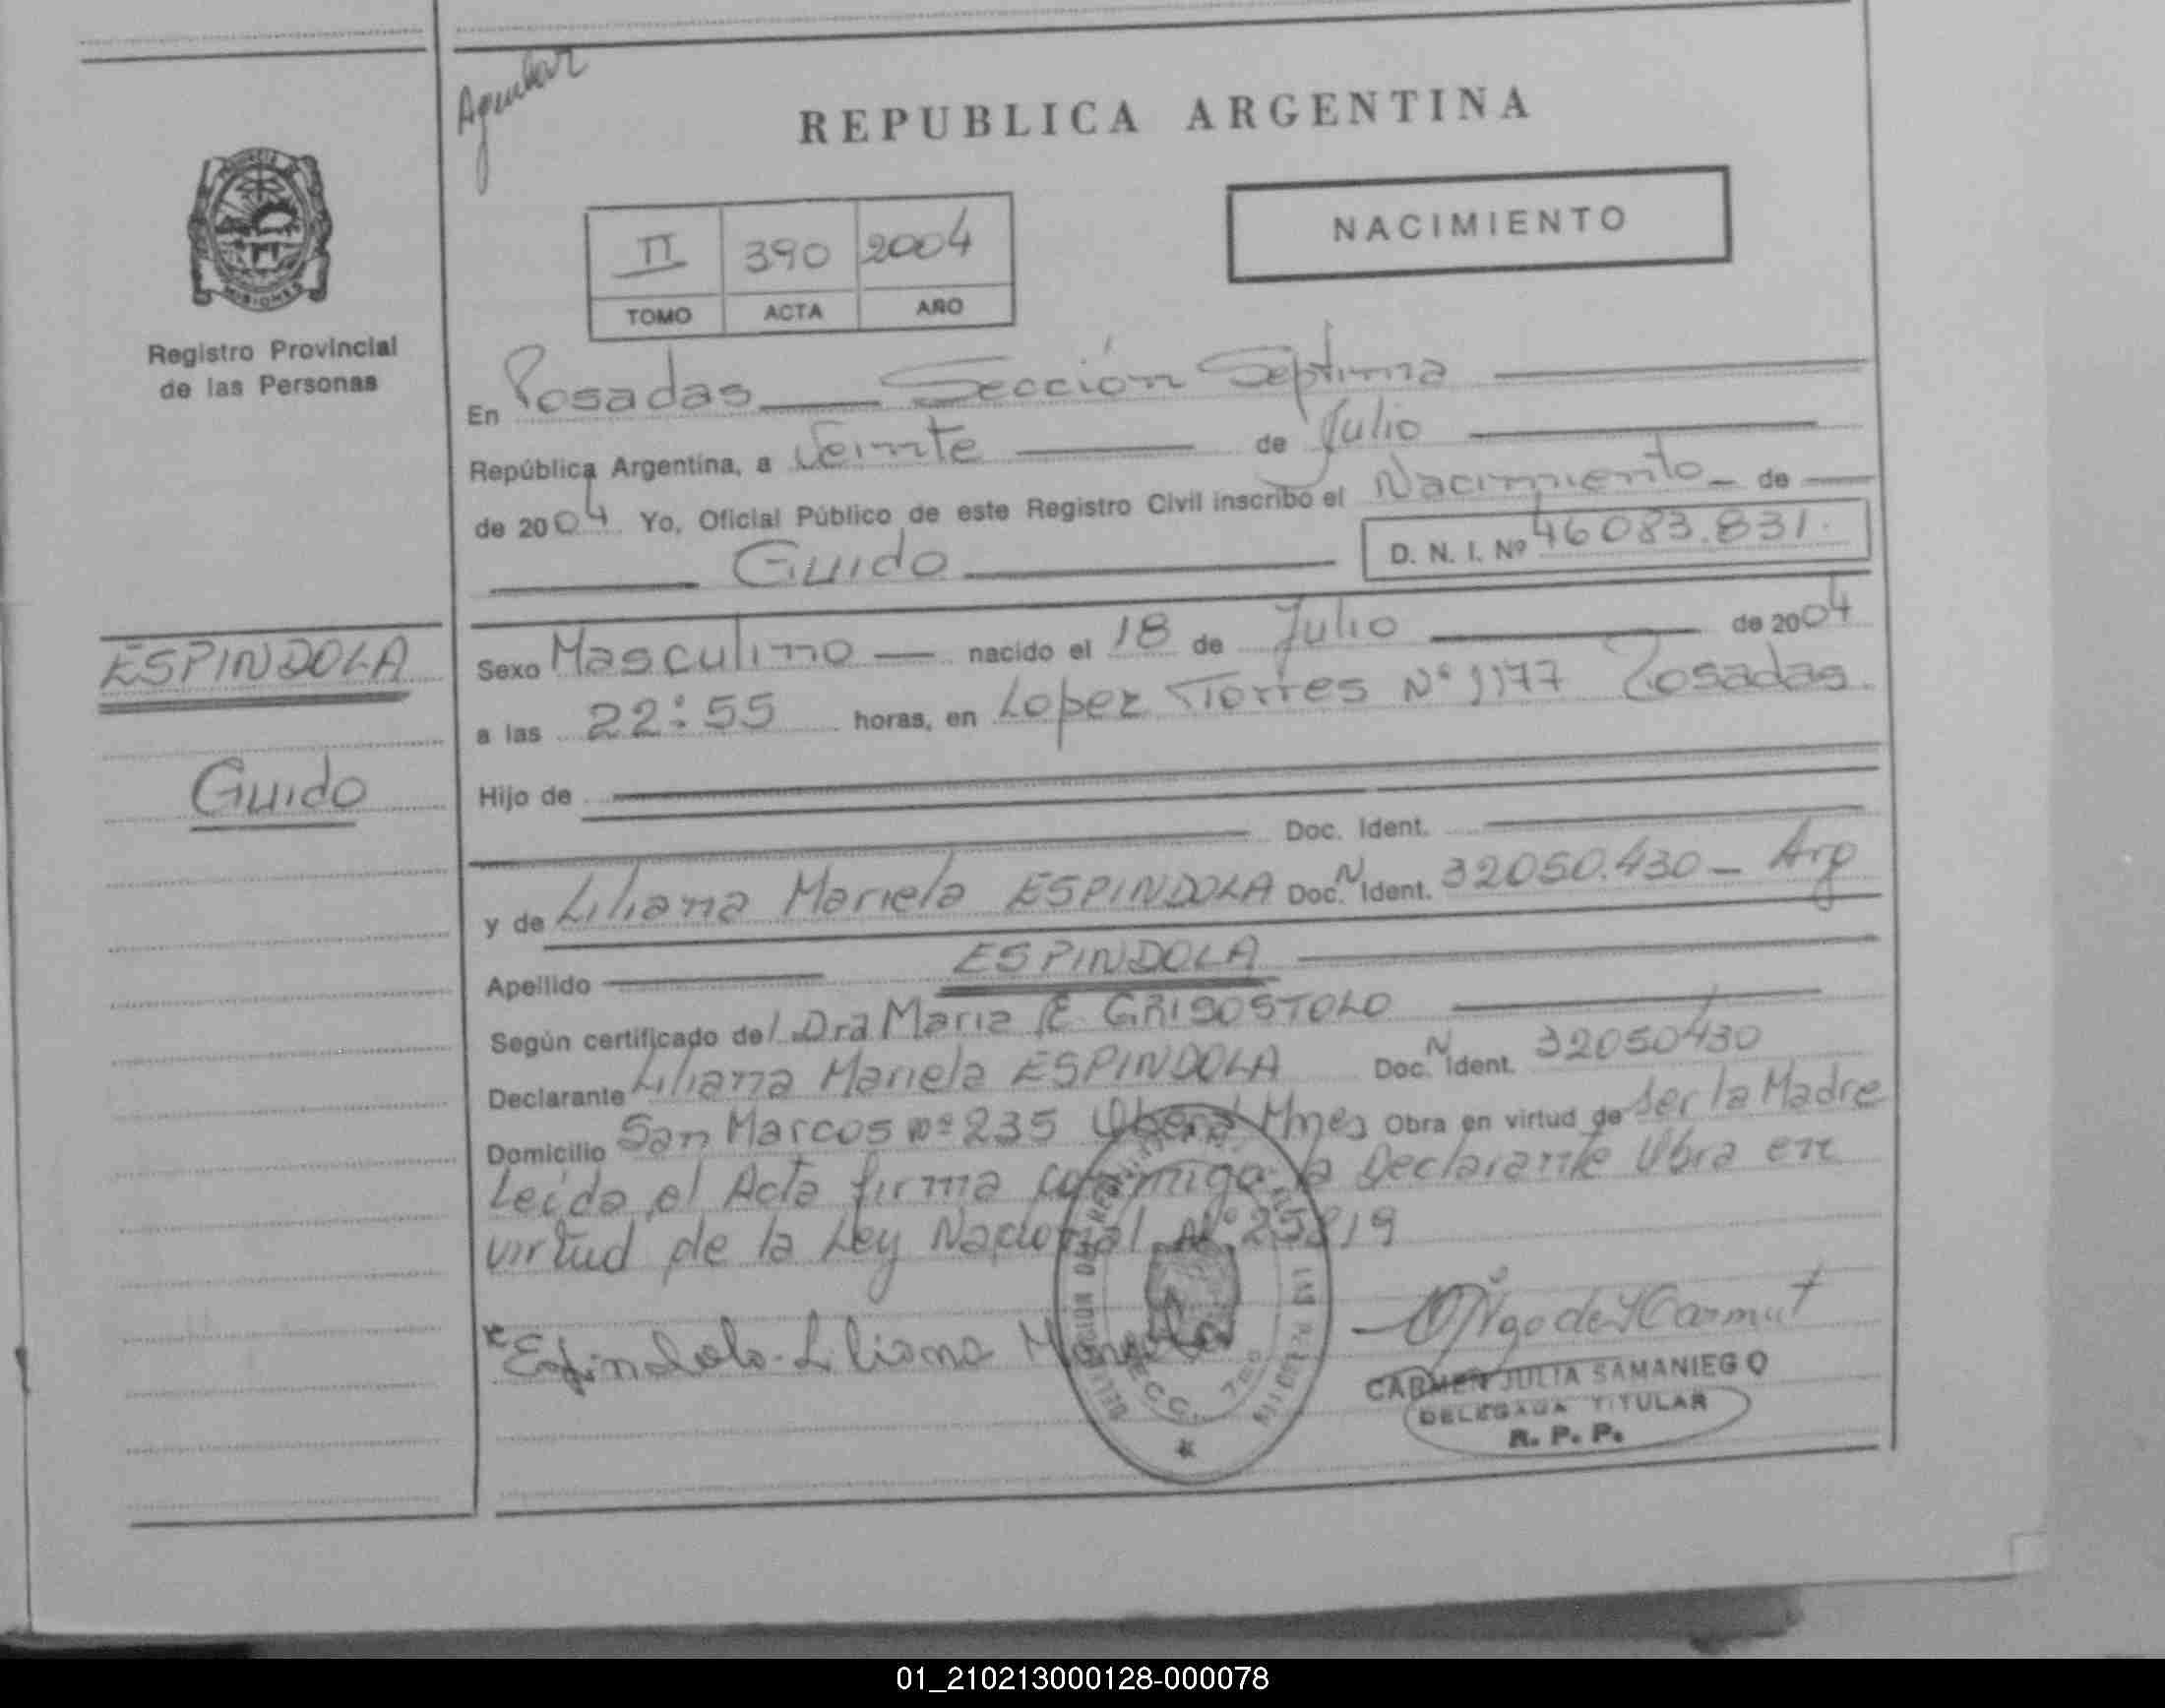 Aguilar
REPUBLICA ARGENTINA
PROVINCIA DE MISIONES
Registro Provincial
de las Personas
II 390 2004
TOMO ACTA AÑO
NACIMIENTO
En Posadas — Sección Septima
República Argentina, a Veinte de Julio
de 2004 Yo, Oficial Público de este Registro Civil inscribo el Nacimiento de
Guido
D. N. I. Nº 46083.831.
ESPINDOLA
Guido
Sexo Masculino nacido el 18 de Julio de 2004
a las 22:55 horas, en Lopez Torres Nº 1177 Posadas
Hijo de
Doc. Ident.
y de Liliana Mariela ESPINDOLA Doc. N Ident. 32050.430 - Arg
Apellido ESPINDOLA
Según certificado del Dra Maria E GRISOSTOLO
Declarante Liliana Mariela ESPINDOLA Doc. N Ident. 32050430
Domicilio San Marcos nº 235 Oberá Mnes Obra en virtud de Ser la Madre
Leída el Acta firma conmigo la Declarante Obra en
virtud de la Ley Nacional Nº 25819
Espindola Liliana Mariela
SECC. 7ma
CARMEN JULIA SAMANIEGO
DELEGADA TITULAR
R. P. P.
01_210213000128-000078